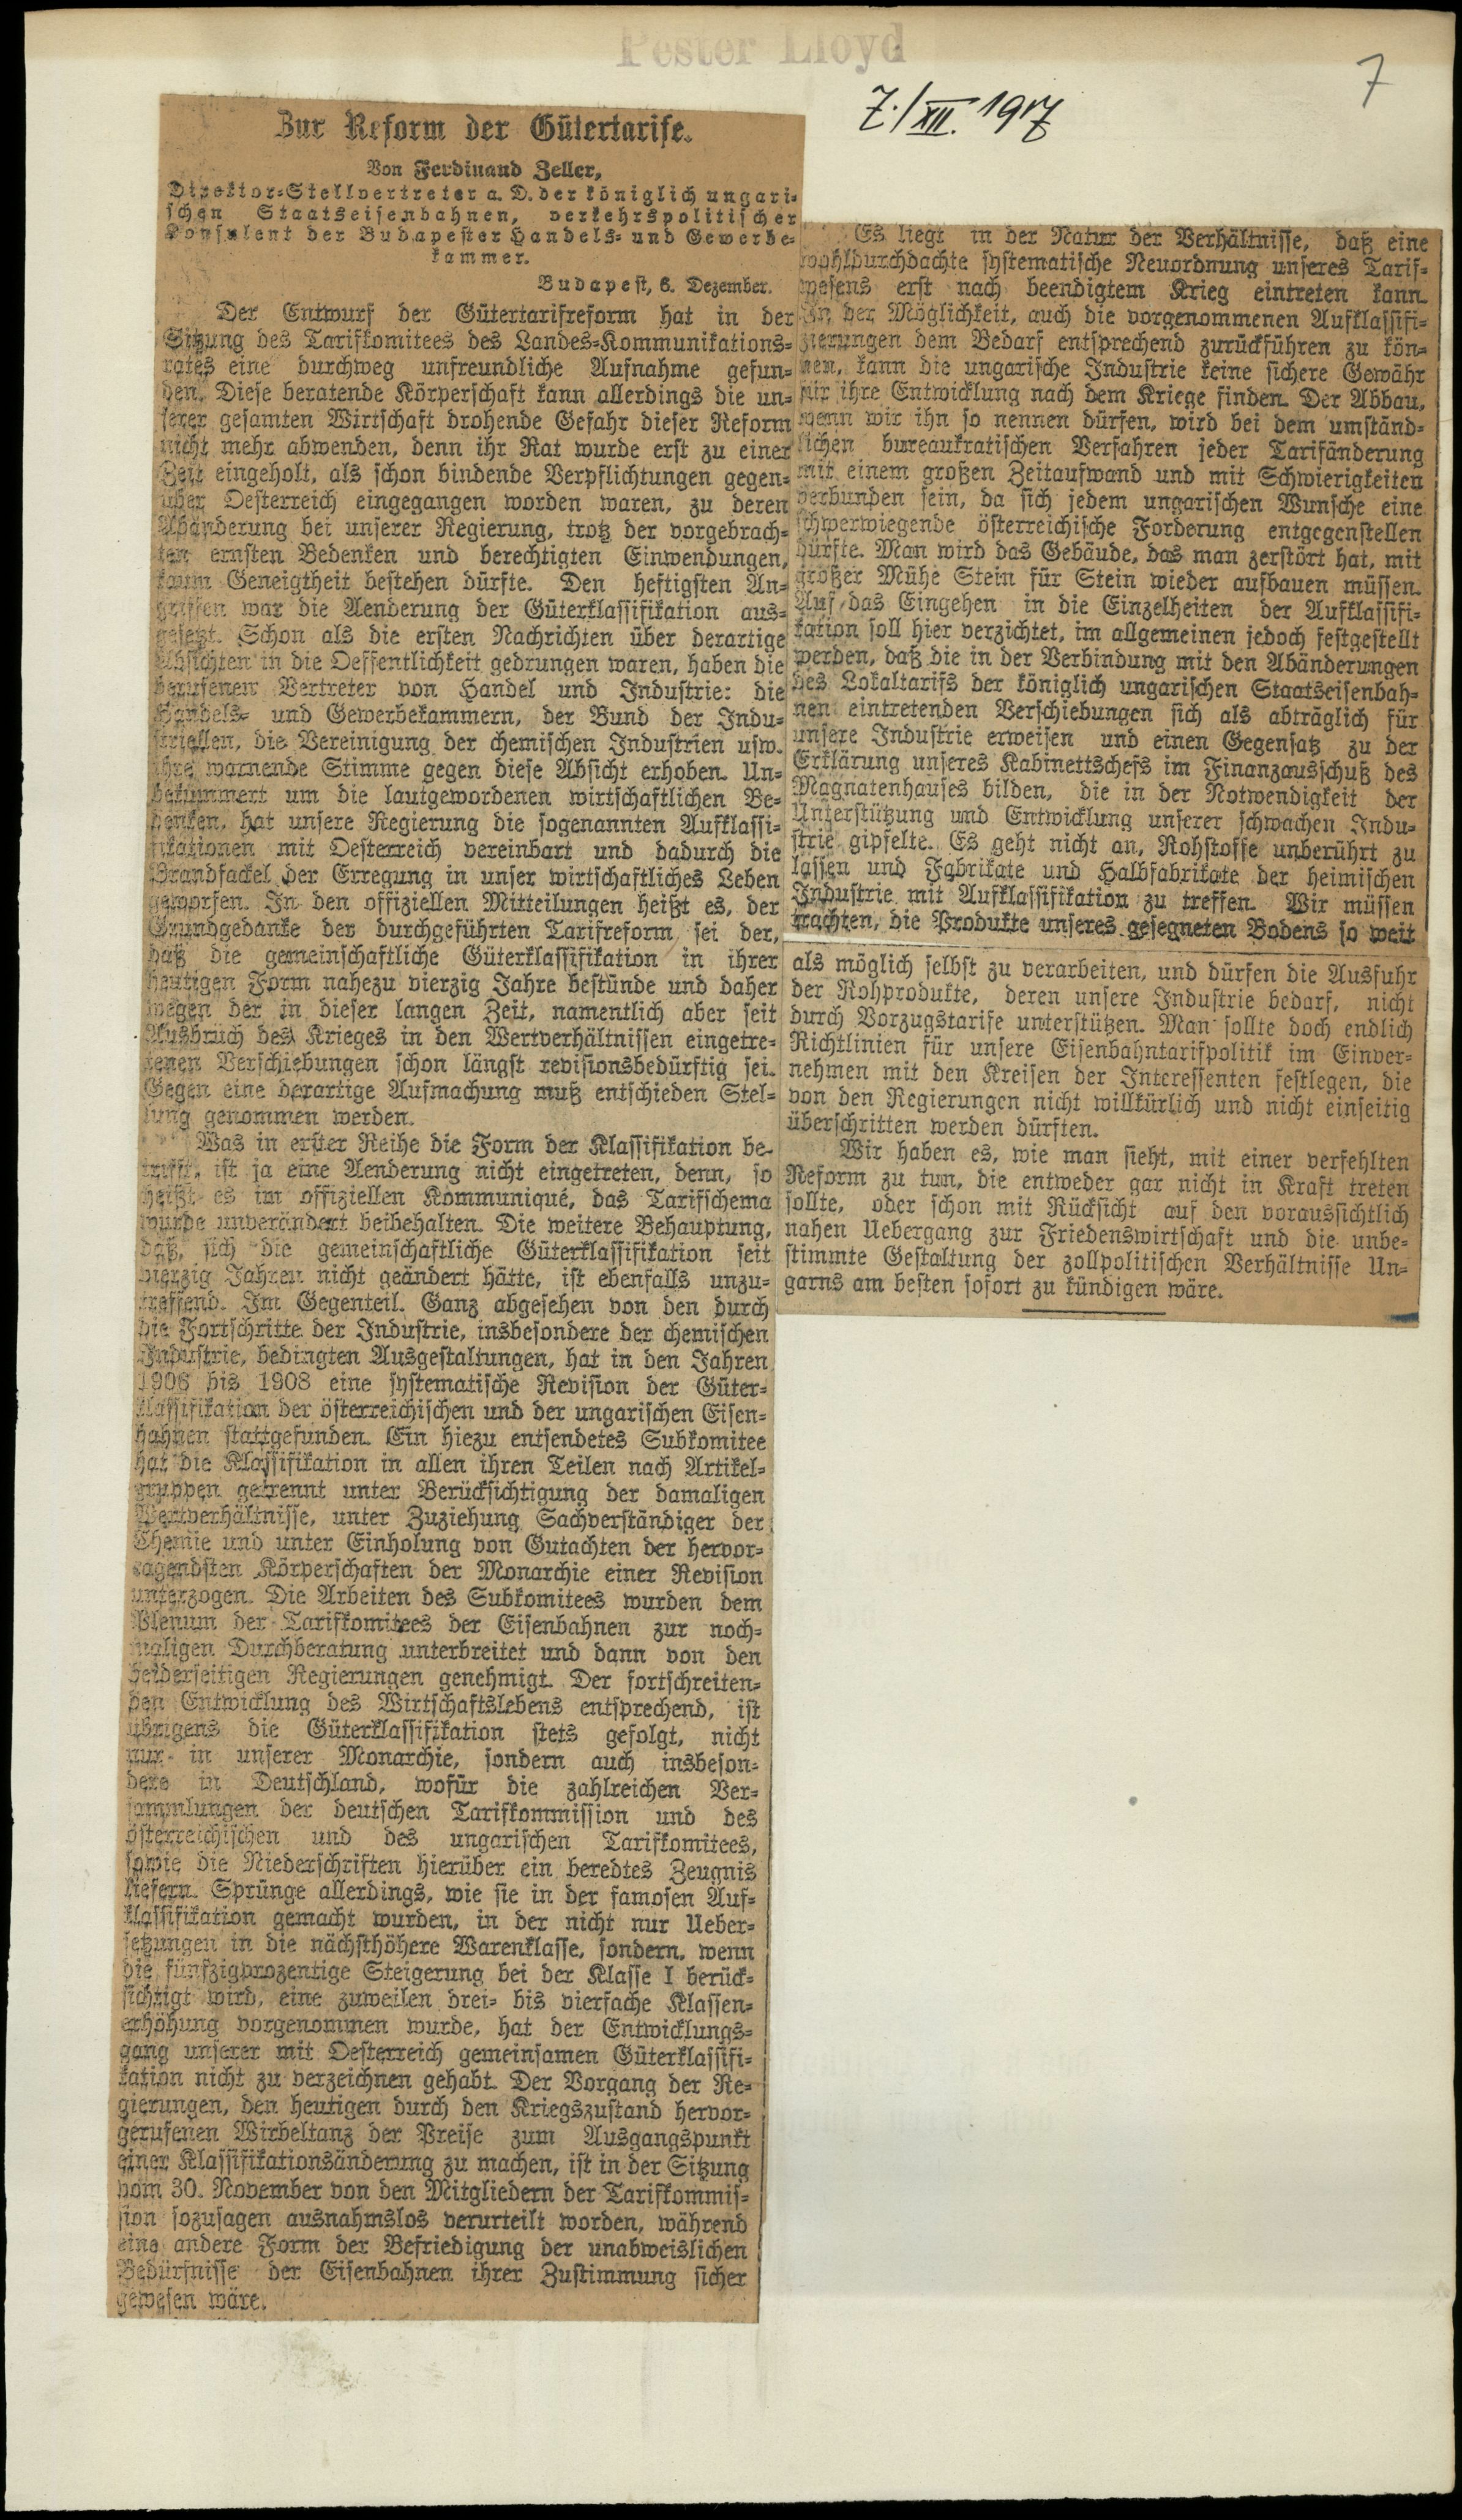 Pester Lloyd
7
7./XII. 1917
Zur Reform der Gütertarife.
Von Ferdinand Zeller,
Direktor-Stellvertreter a. D. der königlich ungari-
schen Staatseisenbahnen, verkehrspolitischer
Konsulent der Budapester Handels- und Gewerbe-
kammer.
Budapest, 6. Dezember.
Der Entwurf der Gütertarifreform hat in der
Sitzung des Tarifkomitees des Landes-Kommunikations-
rates eine durchweg unfreundliche Aufnahme gefun-
den. Diese beratende Körperschaft kann allerdings die un-
serer gesamten Wirtschaft drohende Gefahr dieser Reform
nicht mehr abwenden, denn ihr Rat wurde erst zu einer
Zeit eingeholt, als schon bindende Verpflichtungen gegen-
über Oesterreich eingegangen worden waren, zu deren
Abänderung bei unserer Regierung, trotz der vorgebrach-
ten ernsten Bedenken und berechtigten Einwendungen,
kaum Geneigtheit bestehen dürfte. Den heftigsten An-
griffen war die Aenderung der Güterklassifikation aus-
gesetzt. Schon als die ersten Nachrichten über derartige
Absichten in die Oeffentlichkeit gedrungen waren, haben die
berufenen Vertreter von Handel und Industrie: die
Handels- und Gewerbekammern, der Bund der Indu-
striellen, die Vereinigung der chemischen Industrien usw.
ihre warnende Stimme gegen diese Absicht erhoben. Un-
bekümmert um die lautgewordenen wirtschaftlichen Be-
denken, hat unsere Regierung die sogenannten Aufklassi-
fikationen mit Oesterreich vereinbart und dadurch die
Brandfackel der Erregung in unser wirtschaftliches Leben
geworfen. In den offiziellen Mitteilungen heißt es, der
Grundgedanke der durchgeführten Tarifreform sei der,
daß die gemeinschaftliche Güterklassifikation in ihrer
heutigen Form nahezu vierzig Jahre bestünde und daher
wegen der in dieser langen Zeit, namentlich aber seit
Ausbruch des Krieges in den Wertverhältnissen eingetre-
tenen Verschiebungen schon längst revisionsbedürftig sei.
Gegen eine derartige Aufmachung muß entschieden Stel-
lung genommen werden.
Was in erster Reihe die Form der Klassifikation be-
trifft, ist ja eine Aenderung nicht eingetreten, denn, so
heißt es im offiziellen Kommuniqué, das Tarifschema
wurde unverändert beibehalten. Die weitere Behauptung,
daß, sich die gemeinschaftliche Güterklassifikation seit
vierzig Jahren nicht geändert hätte, ist ebenfalls unzu-
treffend. Im Gegenteil. Ganz abgesehen von den durch
die Fortschritte der Industrie, insbesondere der chemischen
Industrie, bedingten Ausgestaltungen, hat in den Jahren
1906 bis 1908 eine systematische Revision der Güter-
klassifikation der österreichischen und der ungarischen Eisen-
bahnen stattgefunden. Ein hiezu entsendetes Subkomitee
hat die Klassifikation in allen ihren Teilen nach Artikel-
gruppen getrennt unter Berücksichtigung der damaligen
Wertverhältnisse, unter Zuziehung Sachverständiger der
Chemie und unter Einholung von Gutachten der hervor-
ragendsten Körperschaften der Monarchie einer Revision
unterzogen. Die Arbeiten des Subkomitees wurden dem
Plenum der Tarifkomitees der Eisenbahnen zur noch-
maligen Durchberatung unterbreitet und dann von den
beiderseitigen Regierungen genehmigt. Der fortschreiten-
den Entwicklung des Wirtschaftslebens entsprechend, ist
übrigens die Güterklassifikation stets gefolgt, nicht
nur in unserer Monarchie, sondern auch insbeson-
dere in Deutschland, wofür die zahlreichen Ver-
sammlungen der deutschen Tarifkommission und des
österreichischen und des ungarischen Tarifkomitees,
sowie die Niederschriften hierüber ein beredtes Zeugnis
liefern. Sprünge allerdings, wie sie in der famosen Auf-
klassifikation gemacht wurden, in der nicht nur Ueber-
setzungen in die nächsthöhere Warenklasse, sondern, wenn
die fünfzigprozentige Steigerung bei der Klasse I berück-
sichtigt wird, eine zuweilen drei- bis vierfache Klassen-
erhöhung vorgenommen wurde, hat der Entwicklungs-
gang unserer mit Oesterreich gemeinsamen Güterklassifi-
kation nicht zu verzeichnen gehabt. Der Vorgang der Re-
gierungen, den heutigen durch den Kriegszustand hervor-
gerufenen Wirbeltanz der Preise zum Ausgangspunkt
einer Klassifikationsänderung zu machen, ist in der Sitzung
vom 30. November von den Mitgliedern der Tarifkommis-
sion sozusagen ausnahmslos verurteilt worden, während
eine andere Form der Befriedigung der unabweislichen
Bedürfnisse der Eisenbahnen ihrer Zustimmung sicher
gewesen wäre.
Es liegt in der Natur der Verhältnisse, daß eine
wohldurchdachte systematische Neuordnung unseres Tarif-
wesens erst nach beendigtem Krieg eintreten kann.
In der Möglichkeit, auch die vorgenommenen Aufklassifi-
zierungen dem Bedarf entsprechend zurückführen zu kön-
nen, kann die ungarische Industrie keine sichere Gewähr
für ihre Entwicklung nach dem Kriege finden. Der Abbau,
wenn wir ihn so nennen dürfen, wird bei dem umständ-
lichen bureaukratischen Verfahren jeder Tarifänderung
mit einem großen Zeitaufwand und mit Schwierigkeiten
verbunden sein, da sich jedem ungarischen Wunsche eine
schwerwiegende österreichische Forderung entgegenstellen
dürfte. Man wird das Gebäude, das man zerstört hat, mit
großer Mühe Stein für Stein wieder aufbauen müssen.
Auf das Eingehen in die Einzelheiten der Aufklassifi-
kation soll hier verzichtet, im allgemeinen jedoch festgestellt
werden, daß die in der Verbindung mit den Abänderungen
des Lokaltarifs der königlich ungarischen Staatseisenbah-
nen eintretenden Verschiebungen sich als abträglich für
unsere Industrie erweisen und einen Gegensatz zu der
Erklärung unseres Kabinettschefs im Finanzausschuß des
Magnatenhauses bilden, die in der Notwendigkeit der
Unterstützung und Entwicklung unserer schwachen Indu-
strie gipfelte. Es geht nicht an, Rohstoffe unberührt zu
lassen und Fabrikate und Halbfabrikate der heimischen
Industrie mit Aufklassifikation zu treffen. Wir müssen
trachten, die Produkte unseres gesegneten Bodens so weit
als möglich selbst zu verarbeiten, und dürfen die Ausfuhr
der Rohprodukte, deren unsere Industrie bedarf, nicht
durch Vorzugstarife unterstützen. Man sollte doch endlich
Richtlinien für unsere Eisenbahntarifpolitik im Einver-
nehmen mit den Kreisen der Interessenten festlegen, die
von den Regierungen nicht willkürlich und nicht einseitig
überschritten werden dürften.
Wir haben es, wie man sieht, mit einer verfehlten
Reform zu tun, die entweder gar nicht in Kraft treten
sollte, oder schon mit Rücksicht auf den voraussichtlich
nahen Uebergang zur Friedenswirtschaft und die unbe-
stimmte Gestaltung der zollpolitischen Verhältnisse Un-
garns am besten sofort zu kündigen wäre.